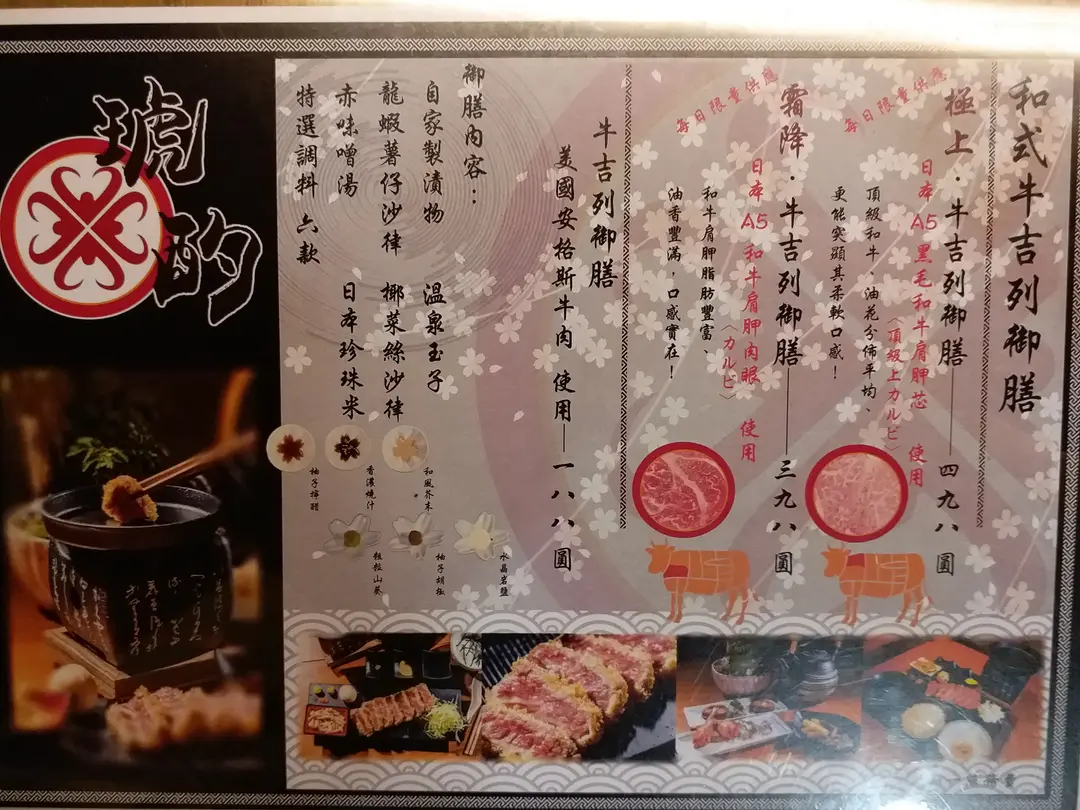 和式牛吉列御膳
每日限量供應
極上・牛吉列御膳——四九八圓
日本A5黑毛和牛肩胛芯 使用
〈頂級上カルビ〉
頂級和牛、油花分佈平均、
更能突顯其柔軟口感！
每日限量供應
霜降・牛吉列御膳——三九八圓
日本A5和牛肩胛肉眼 使用
〈カルビ〉
和牛肩胛脂肪豐富、
油香豐滿，口感實在！
牛吉列御膳
美國安格斯牛肉 使用—一八八圓
御膳內容：
自家製漬物 溫泉玉子
龍蝦薯仔沙律 椰菜絲沙律
赤味噌湯 日本珍珠米
特選調料 六款
和風芥末
香濃燒汁
柚子檸醋
水晶岩鹽
柚子胡椒
粗粒山葵
琥酌